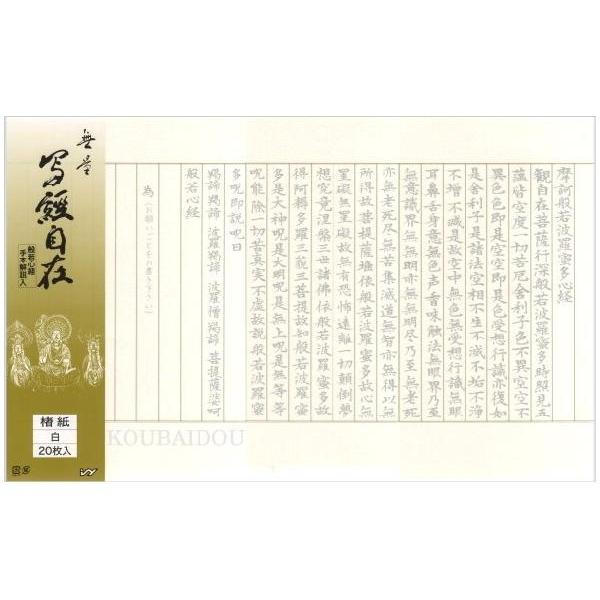 無量
写経自在
般若心経
手本解説入
楮紙
白
20枚入
摩訶般若波羅蜜多心経
観自在菩薩行深般若波羅蜜多時照見五
蘊皆空度一切苦厄舎利子色不異空空不
異色色即是空空即是色受想行識亦復如
是舎利子是諸法空相不生不滅不垢不浄
不増不減是故空中無色無受想行識無眼
耳鼻舌身意無色声香味触法無眼界乃至
無意識界無無明亦無無明尽乃至無老死
亦無老死尽無苦集滅道無智亦無得以無
所得故菩提薩埵依般若波羅蜜多故心無
罣礙無罣礙故無有恐怖遠離一切顛倒夢
想究竟涅槃三世諸佛依般若波羅蜜多故
得阿耨多羅三藐三菩提故知般若波羅蜜
多是大神呪是大明呪是無上呪是無等等
呪能除一切苦真実不虚故説般若波羅蜜
多呪即説呪曰
羯諦 羯諦 波羅羯諦 波羅僧羯諦 菩提薩婆呵
般若心経
為（お願いごとをお書き下さい）
KOUBAIDOU